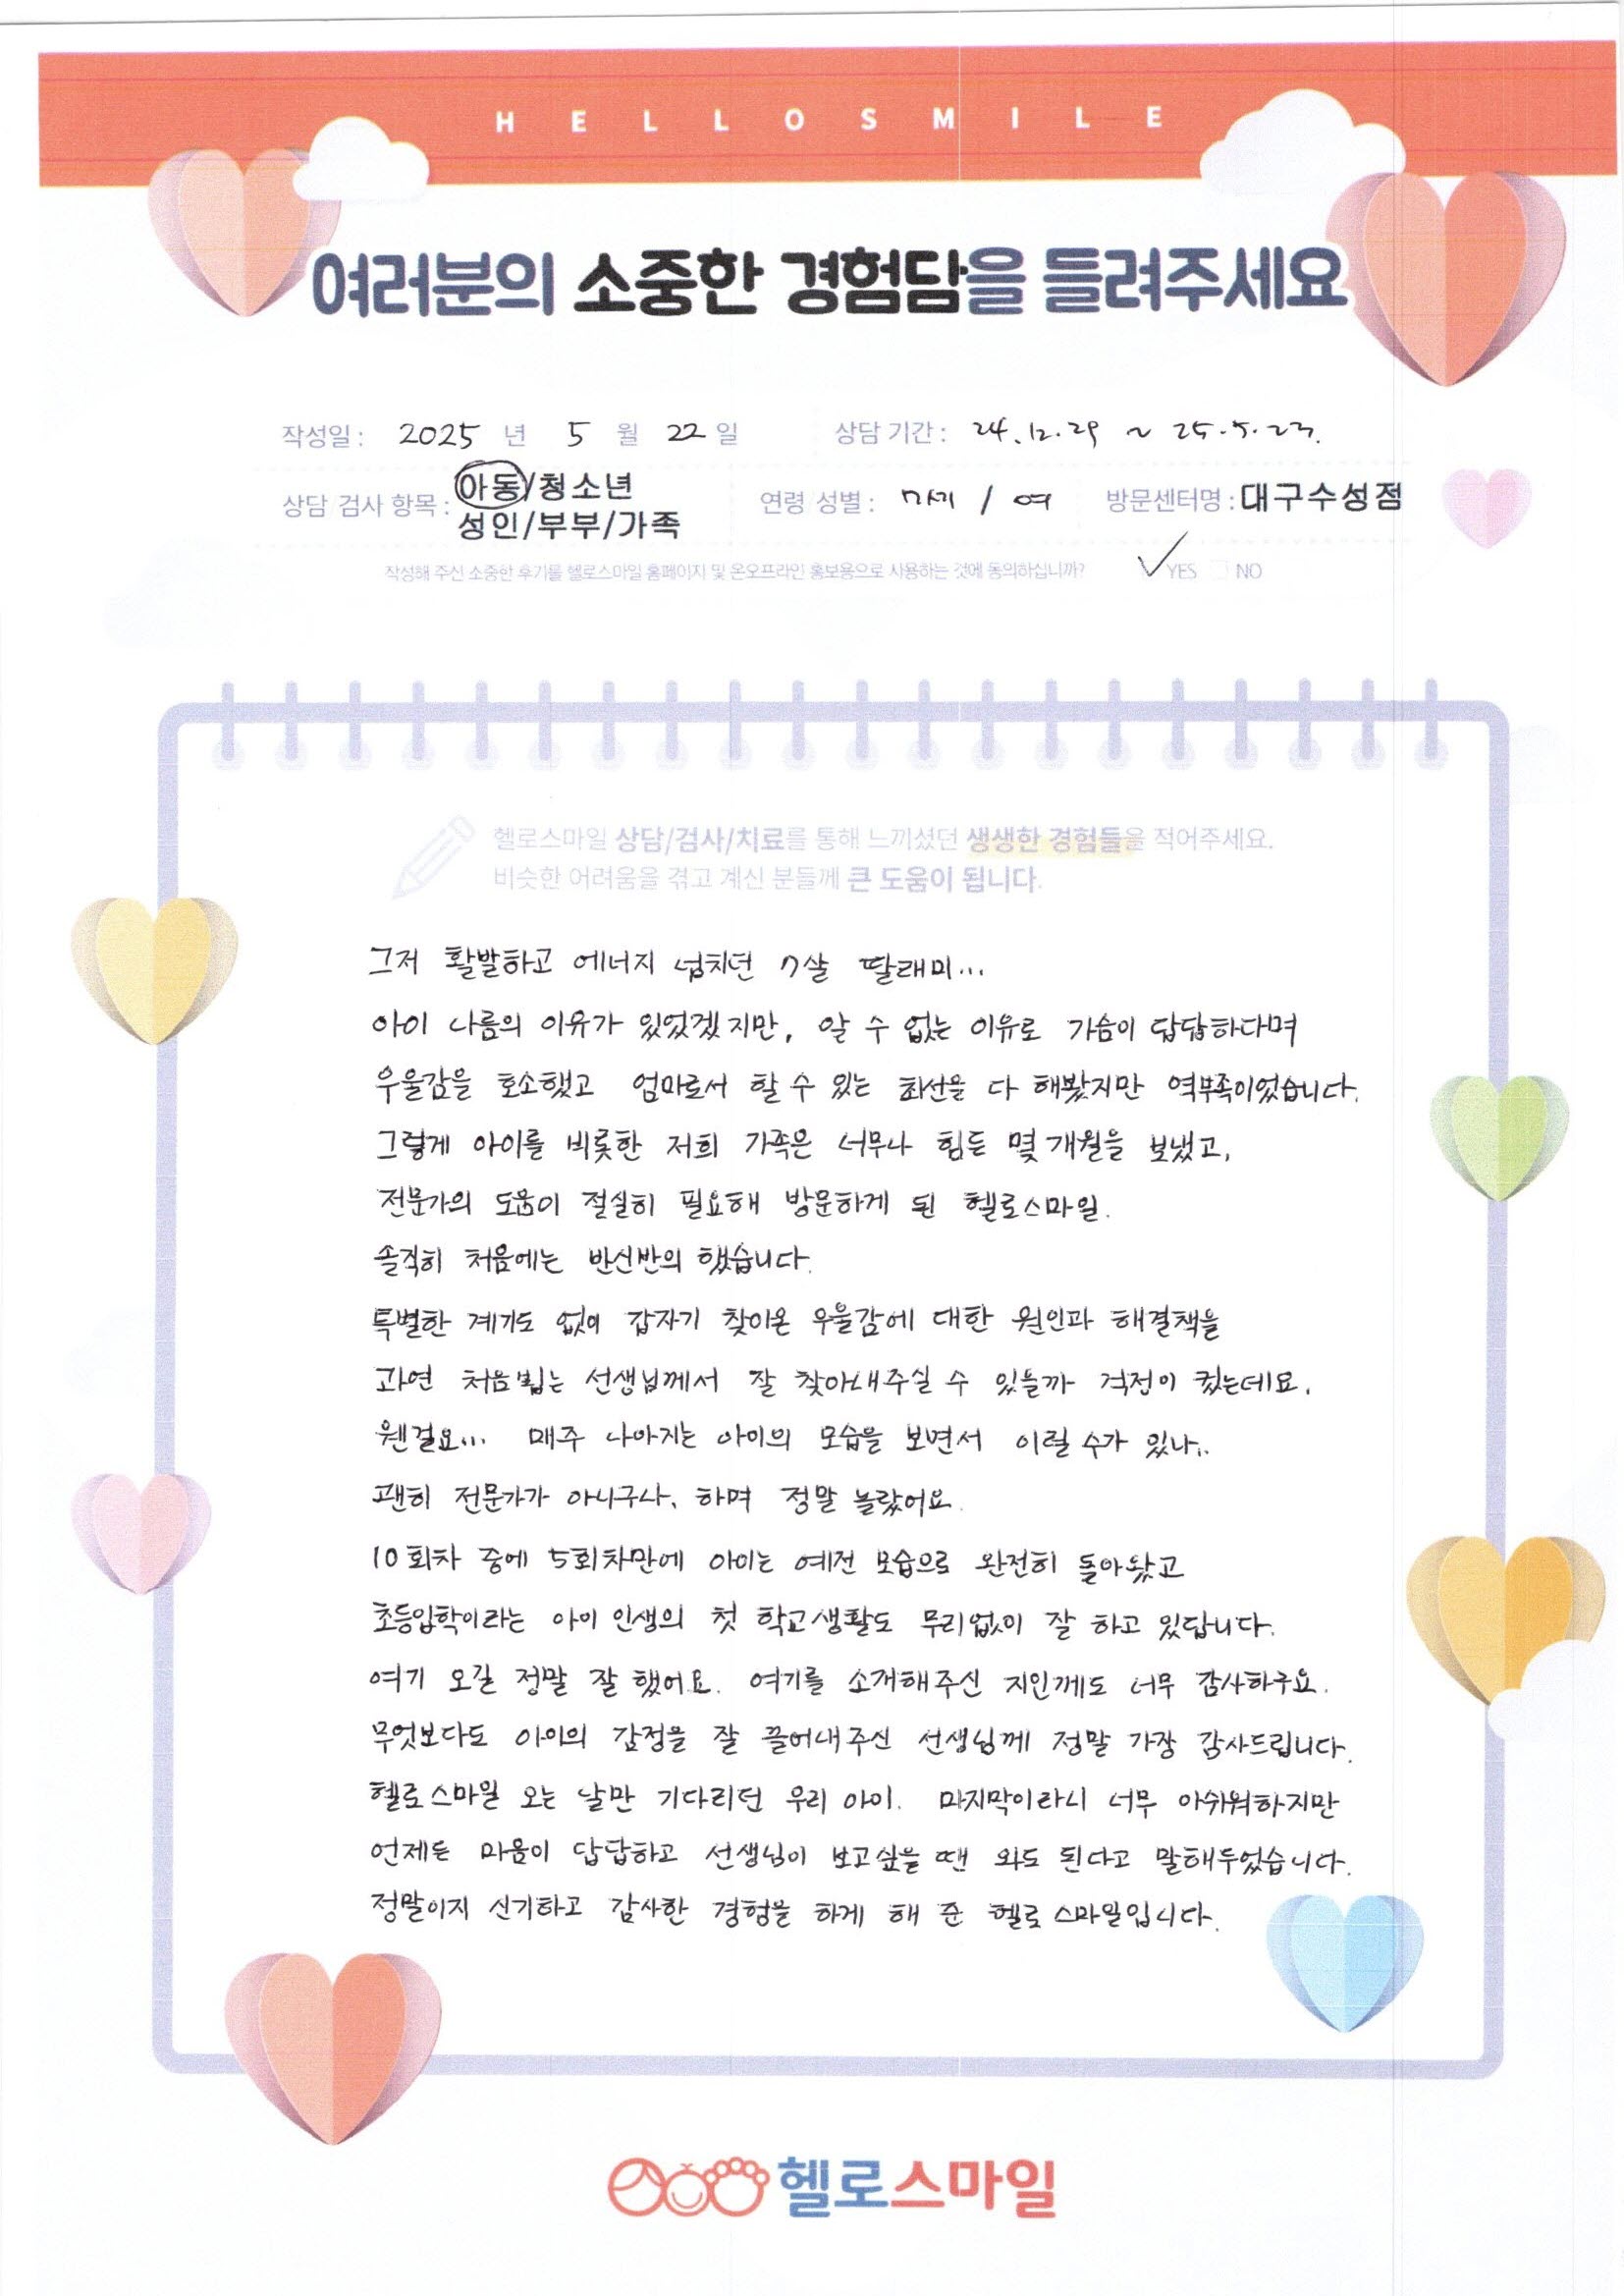 HELLOSMILE
여러분의 소중한 경험담을 들려주세요
작성일 : 2025 년 5 월 22 일 상담 기간 : 24.12.29 ~ 25.5.23.
상담 검사 항목 : 아동/청소년
성인/부부/가족
연령 성별 : 7세 / 여 방문센터명 : 대구수성점
작성해 주신 소중한 후기를 헬로스마일 홈페이지 및 온오프라인 홍보용으로 사용하는 것에 동의하십니까? YES NO
헬로스마일 상담/검사/치료를 통해 느끼셨던 생생한 경험들을 적어주세요.
비슷한 어려움을 겪고 계신 분들께 큰 도움이 됩니다.
그저 활발하고 에너지 넘치던 7살 딸래미...
아이 나름의 이유가 있었겠지만, 알 수 없는 이유로 가슴이 답답하다며
우울감을 호소했고 엄마로서 할 수 있는 최선을 다 해봤지만 역부족이었습니다.
그렇게 아이를 비롯한 저희 가족은 너무나 힘든 몇 개월을 보냈고,
전문가의 도움이 절실히 필요해 방문하게 된 헬로스마일.
솔직히 처음에는 반신반의 했습니다.
특별한 계기도 없이 갑자기 찾아온 우울감에 대한 원인과 해결책을
과연 처음뵙는 선생님께서 잘 찾아내주실 수 있을까 걱정이 컸는데요.
웬걸요... 매주 나아지는 아이의 모습을 보면서 이럴 수가 있나..
괜히 전문가가 아니구나, 하며 정말 놀랐어요.
10회차 중에 5회차만에 아이는 예전 모습으로 완전히 돌아왔고
초등입학이라는 아이 인생의 첫 학교생활도 무리없이 잘 하고 있답니다.
여기 오길 정말 잘 했어요. 여기를 소개해주신 지인께도 너무 감사하구요.
무엇보다도 아이의 감정을 잘 끌어내주신 선생님께 정말 가장 감사드립니다.
헬로스마일 오는 날만 기다리던 우리 아이. 마지막이라니 너무 아쉬워하지만
언제든 마음이 답답하고 선생님이 보고싶을 땐 와도 된다고 말해두었습니다.
정말이지 신기하고 감사한 경험을 하게 해 준 헬로스마일입니다.
헬로스마일